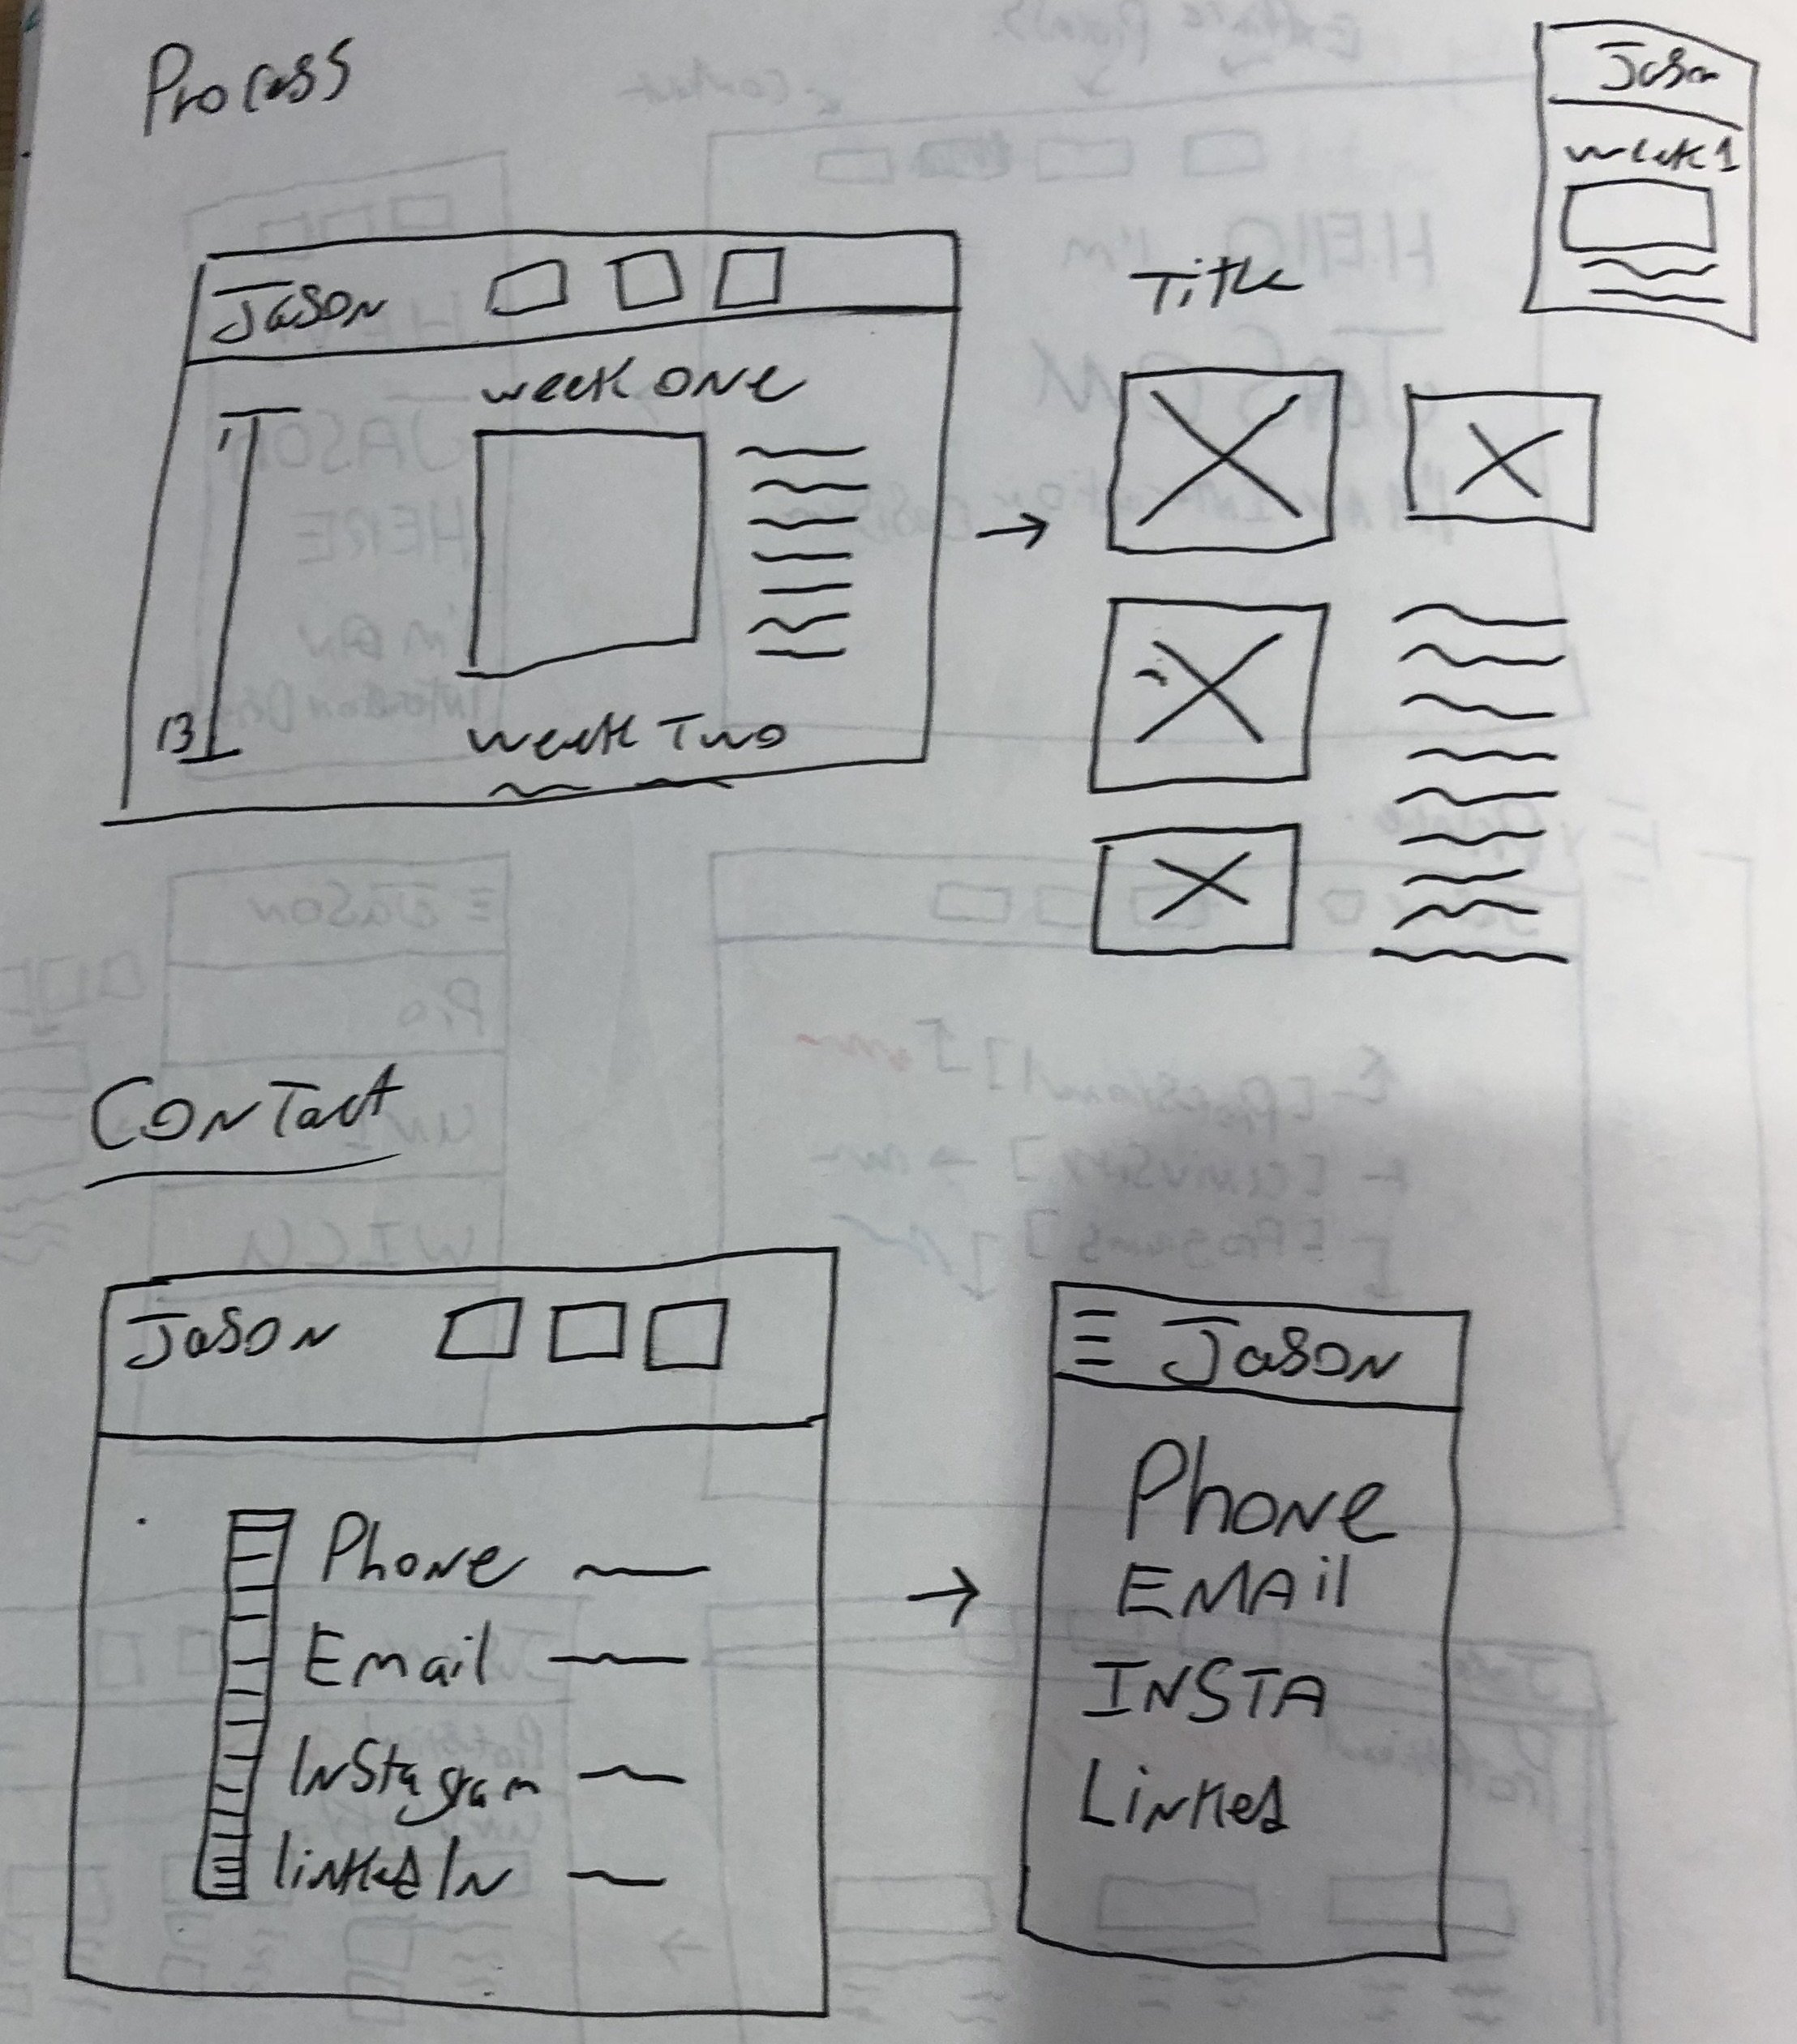 Process
Jason
week 1
Jason
week ONe
1
13
week Two
Title
Contact
Jason
Phone
Email
Instagram
linkedIn
Jason
Phone
EMAil
INSTA
Linked